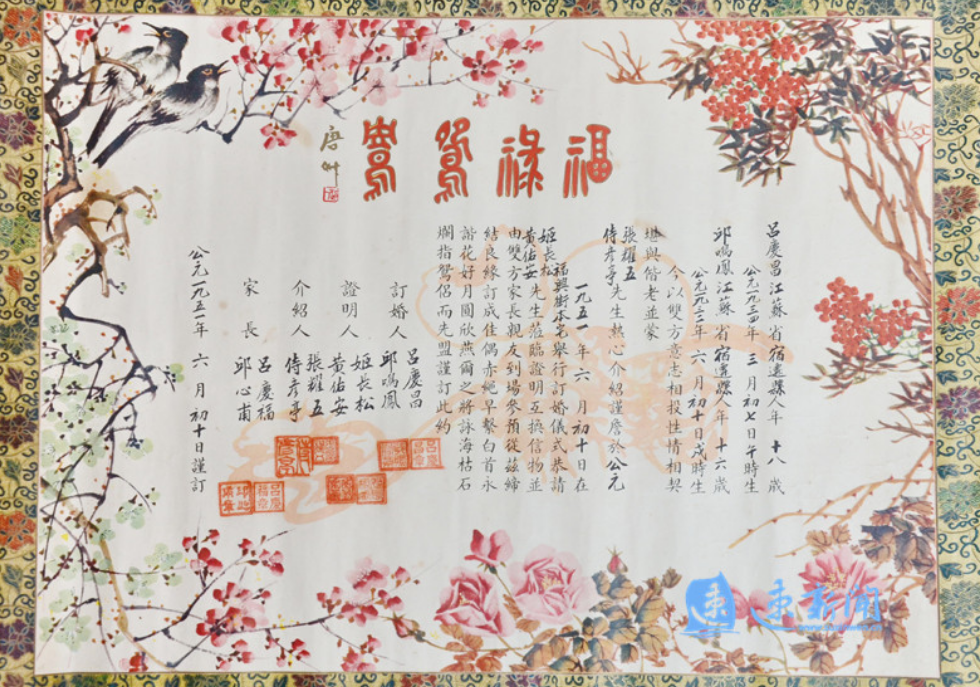 福祿鴛鴦
唐
呂慶昌江蘇省宿遷縣人年十八歲
公元一九三四年三月初七日午時生
邱鳴鳳江蘇省宿遷縣人年十六歲
公元一九三年六月初十日戌時生
今以雙方意志相投性情相契
堪與偕老並蒙
張耀五
侍彥亭先生熱心介紹謹詹於公元
一九五一年六月初十日在
福興街本宅舉行訂婚儀式恭請
姬長松
黃佑安先生蒞臨證明互換信物並
由雙方家長親友到場參預從茲締
結良緣訂成佳偶赤繩早繫白首永
諧花好月圓欣燕爾之將詠海枯石
爛指鴛侶而先盟謹訂此約
訂婚人 呂慶昌
邱鳴鳳
證明人 姬長松
黃佑安
介紹人 張耀五
侍彥亭
家長 呂慶福
邱心甫
公元一九五一年六月初十日謹訂
速新聞